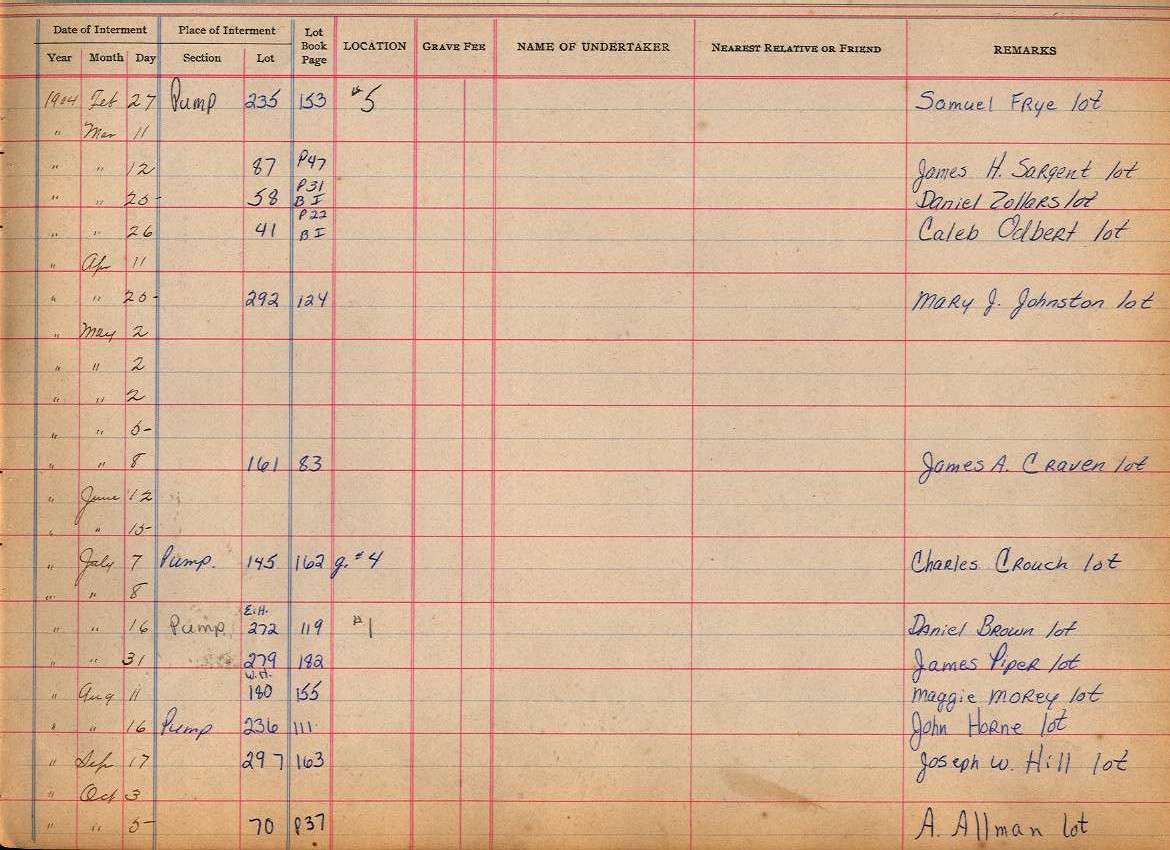 Date of Interment Place of Interment Lot Book Page LOCATION GRAVE FEE NAME OF UNDERTAKER NEAREST RELATIVE OR FRIEND REMARKS
Year Month Day Section Lot
1904 Feb 27 Pump 235 153 #5 Samuel Frye lot
" Mar 11
" " 12 87 P47 James H. Sargent lot
" " 25 58 P31 B I Daniel Zollars lot
" " 26 41 P22 B I Caleb Odbert lot
" Apr 11
" " 25 292 124 Mary J. Johnston lot
" May 2
" " 2
" " 2
" " 5
" " 8 161 83 James A. Craven lot
" June 12
" " 15
" July 7 Pump. 145 162 g. #4 Charles Crouch lot
" " 8
" " 16 Pump E.H. 272 119 #1 Daniel Brown lot
" " 31 279 182 James Piper lot
" Aug 11 W.H. 180 155 Maggie Morey lot
" " 16 Pump 236 111 John Horne lot
" Sep 17 297 163 Joseph W. Hill lot
" Oct 3
" " 5 70 P37 A. Allman lot